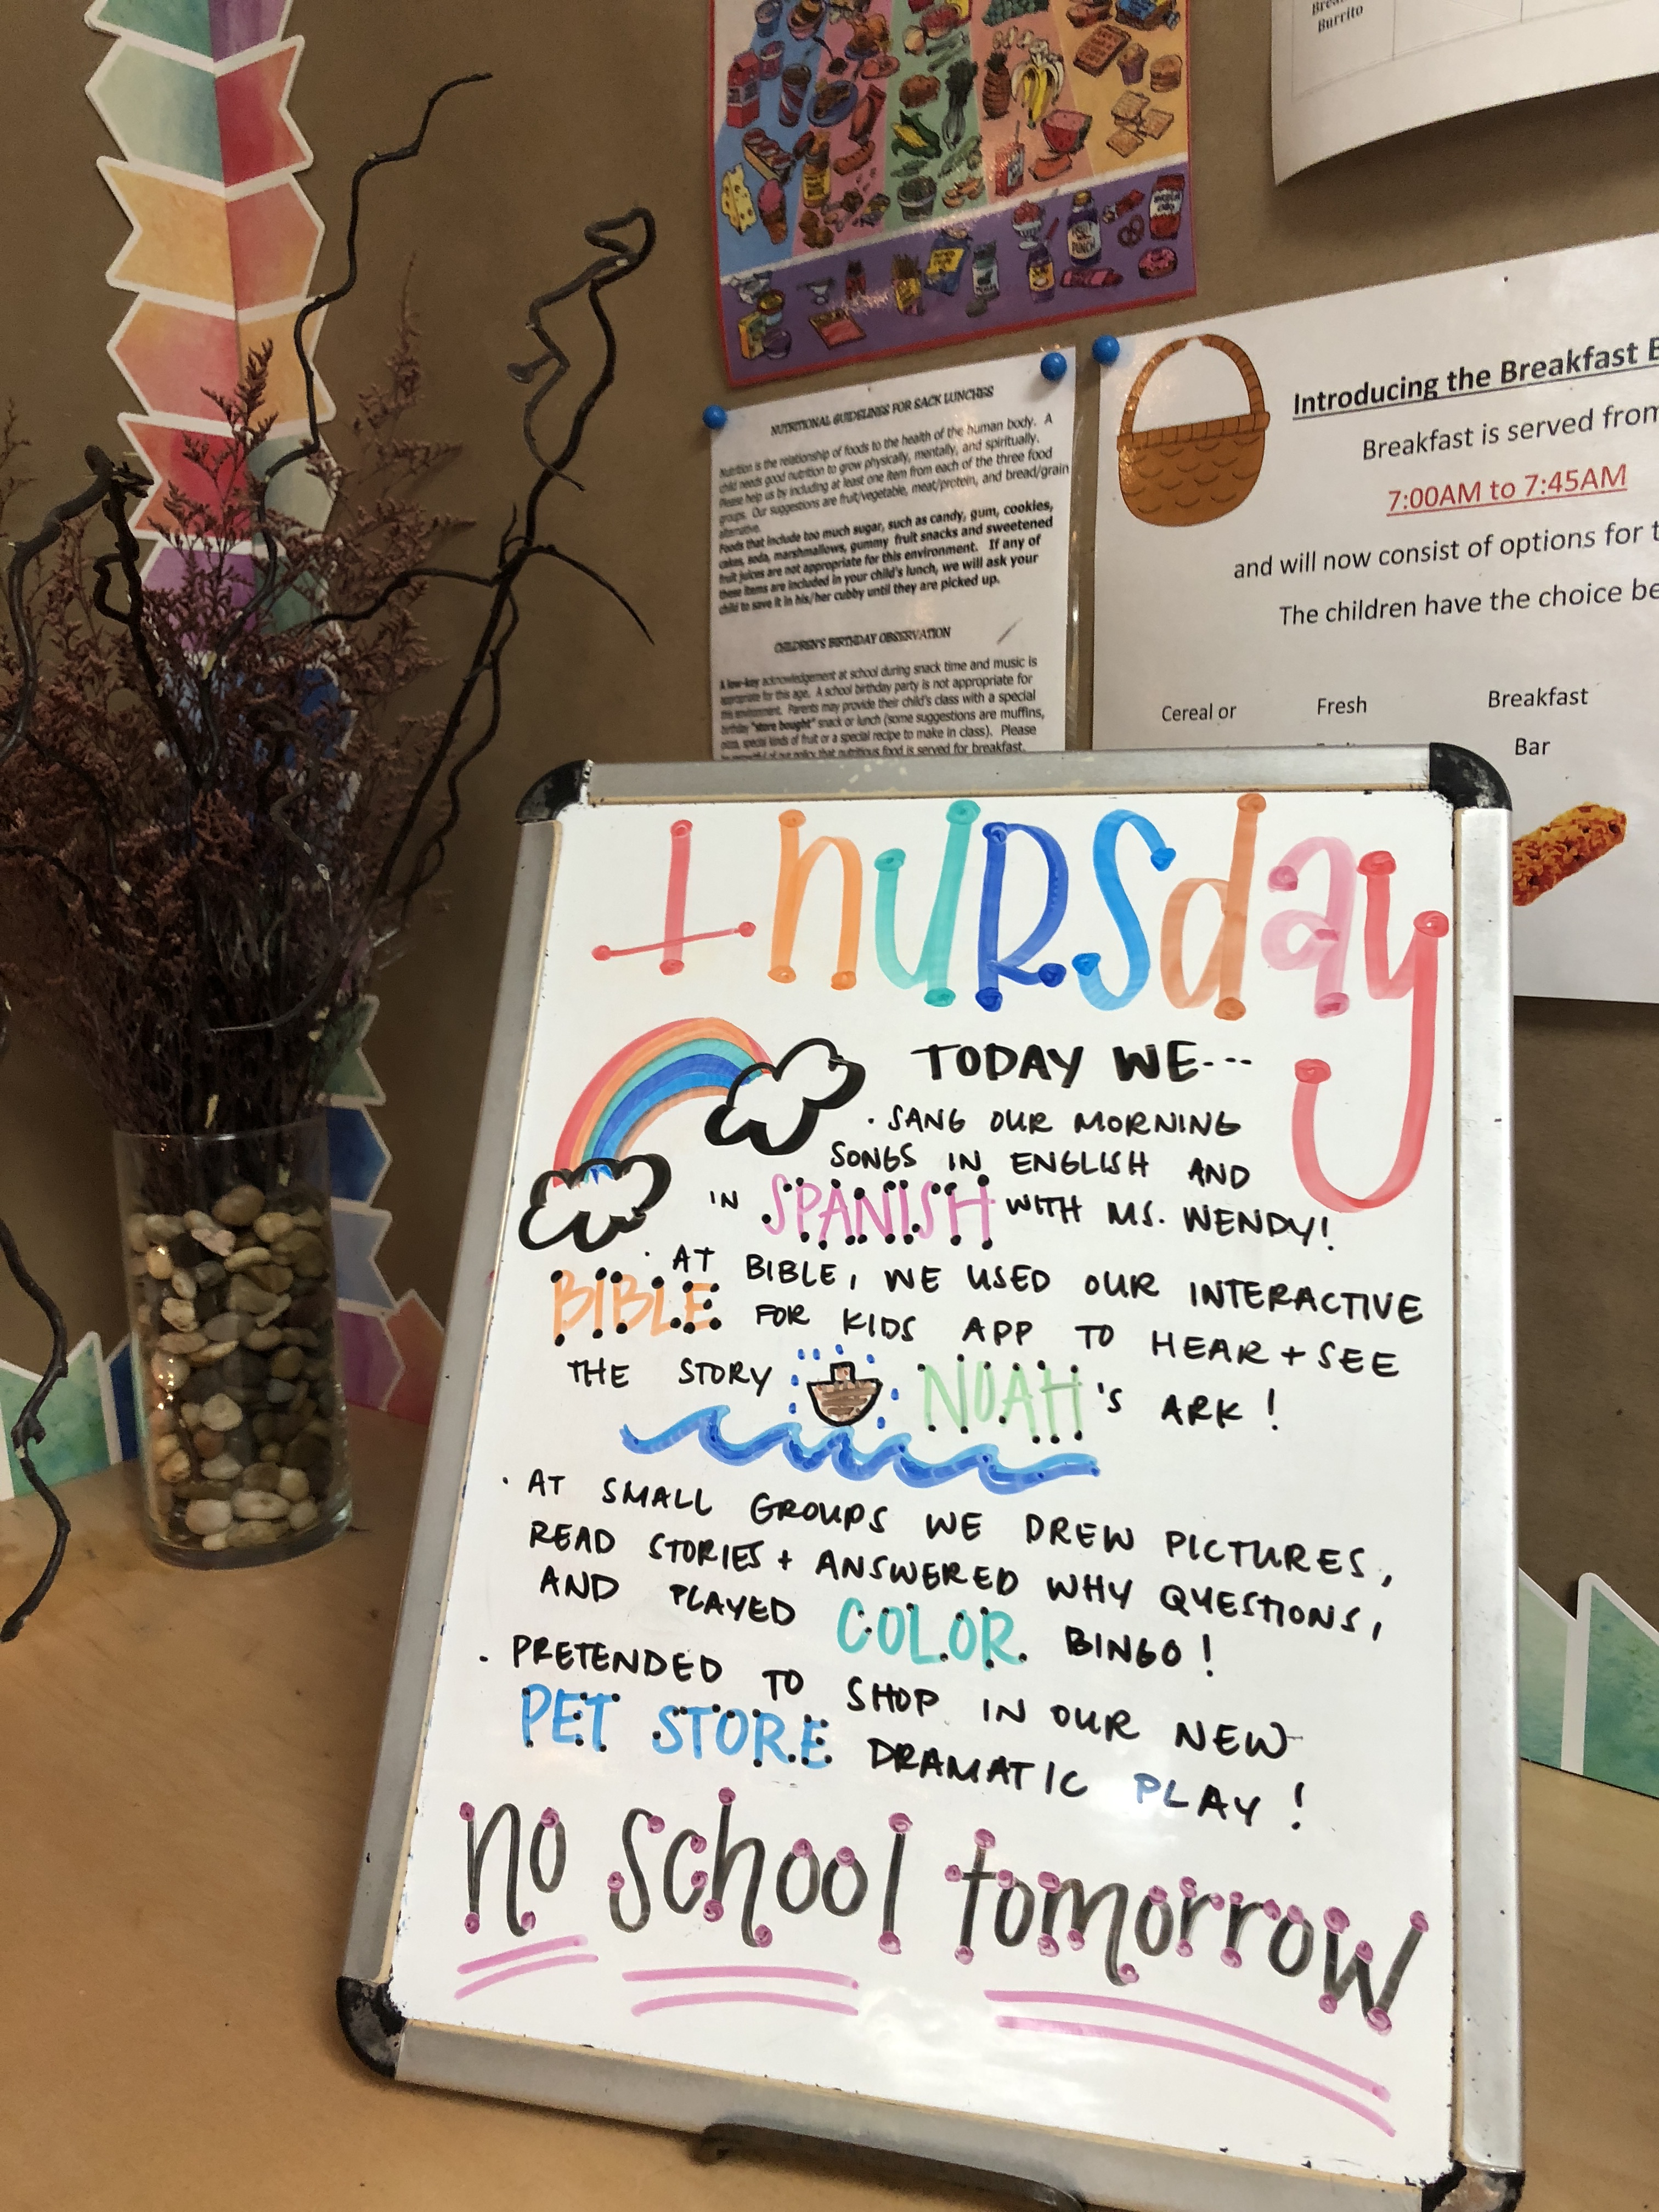 Burrito
NUTRITIONAL GUIDELINES FOR SACK LUNCHES
Nutrition is the relationship of foods to the health of the human body. A
child needs good nutrition to grow physically, mentally, and spiritually.
Please help us by including at least one item from each of the three food
groups. Our suggestions are fruit/vegetable, meat/protein, and bread/grain
alternative.
Foods that include too much sugar, such as candy, gum, cookies,
cakes, soda, marshmallows, gummy fruit snacks and sweetened
fruit juices are not appropriate for this environment. If any of
these items are included in your child's lunch, we will ask your
child to save it in his/her cubby until they are picked up.
CHILDREN'S BIRTHDAY OBSERVATION
A low-key acknowledgement at school during snack time and music is
appropriate for this age. A school birthday party is not appropriate for
this environment. Parents may provide their child's class with a special
birthday "store bought" snack or lunch (some suggestions are muffins,
pizza, special kinds of fruit or a special recipe to make in class). Please
be respectful of our policy that nutritious food is served for breakfast,
Introducing the Breakfast
Breakfast is served from
7:00AM to 7:45AM
and will now consist of options for
The children have the choice
Cereal or Fresh Breakfast
Bar
thuRsday
TODAY WE---
· SANG OUR MORNING
SONGS IN ENGLISH AND
IN SPANISH WITH MS. WENDY!
· AT BIBLE, WE USED OUR INTERACTIVE
BIBLE FOR KIDS APP TO HEAR + SEE
THE STORY NOAH'S ARK!
· AT SMALL GROUPS WE DREW PICTURES,
READ STORIES + ANSWERED WHY QUESTIONS,
AND PLAYED COLOR BINGO!
· PRETENDED TO SHOP IN OUR NEW
PET STORE DRAMATIC PLAY!
no school tomorrow